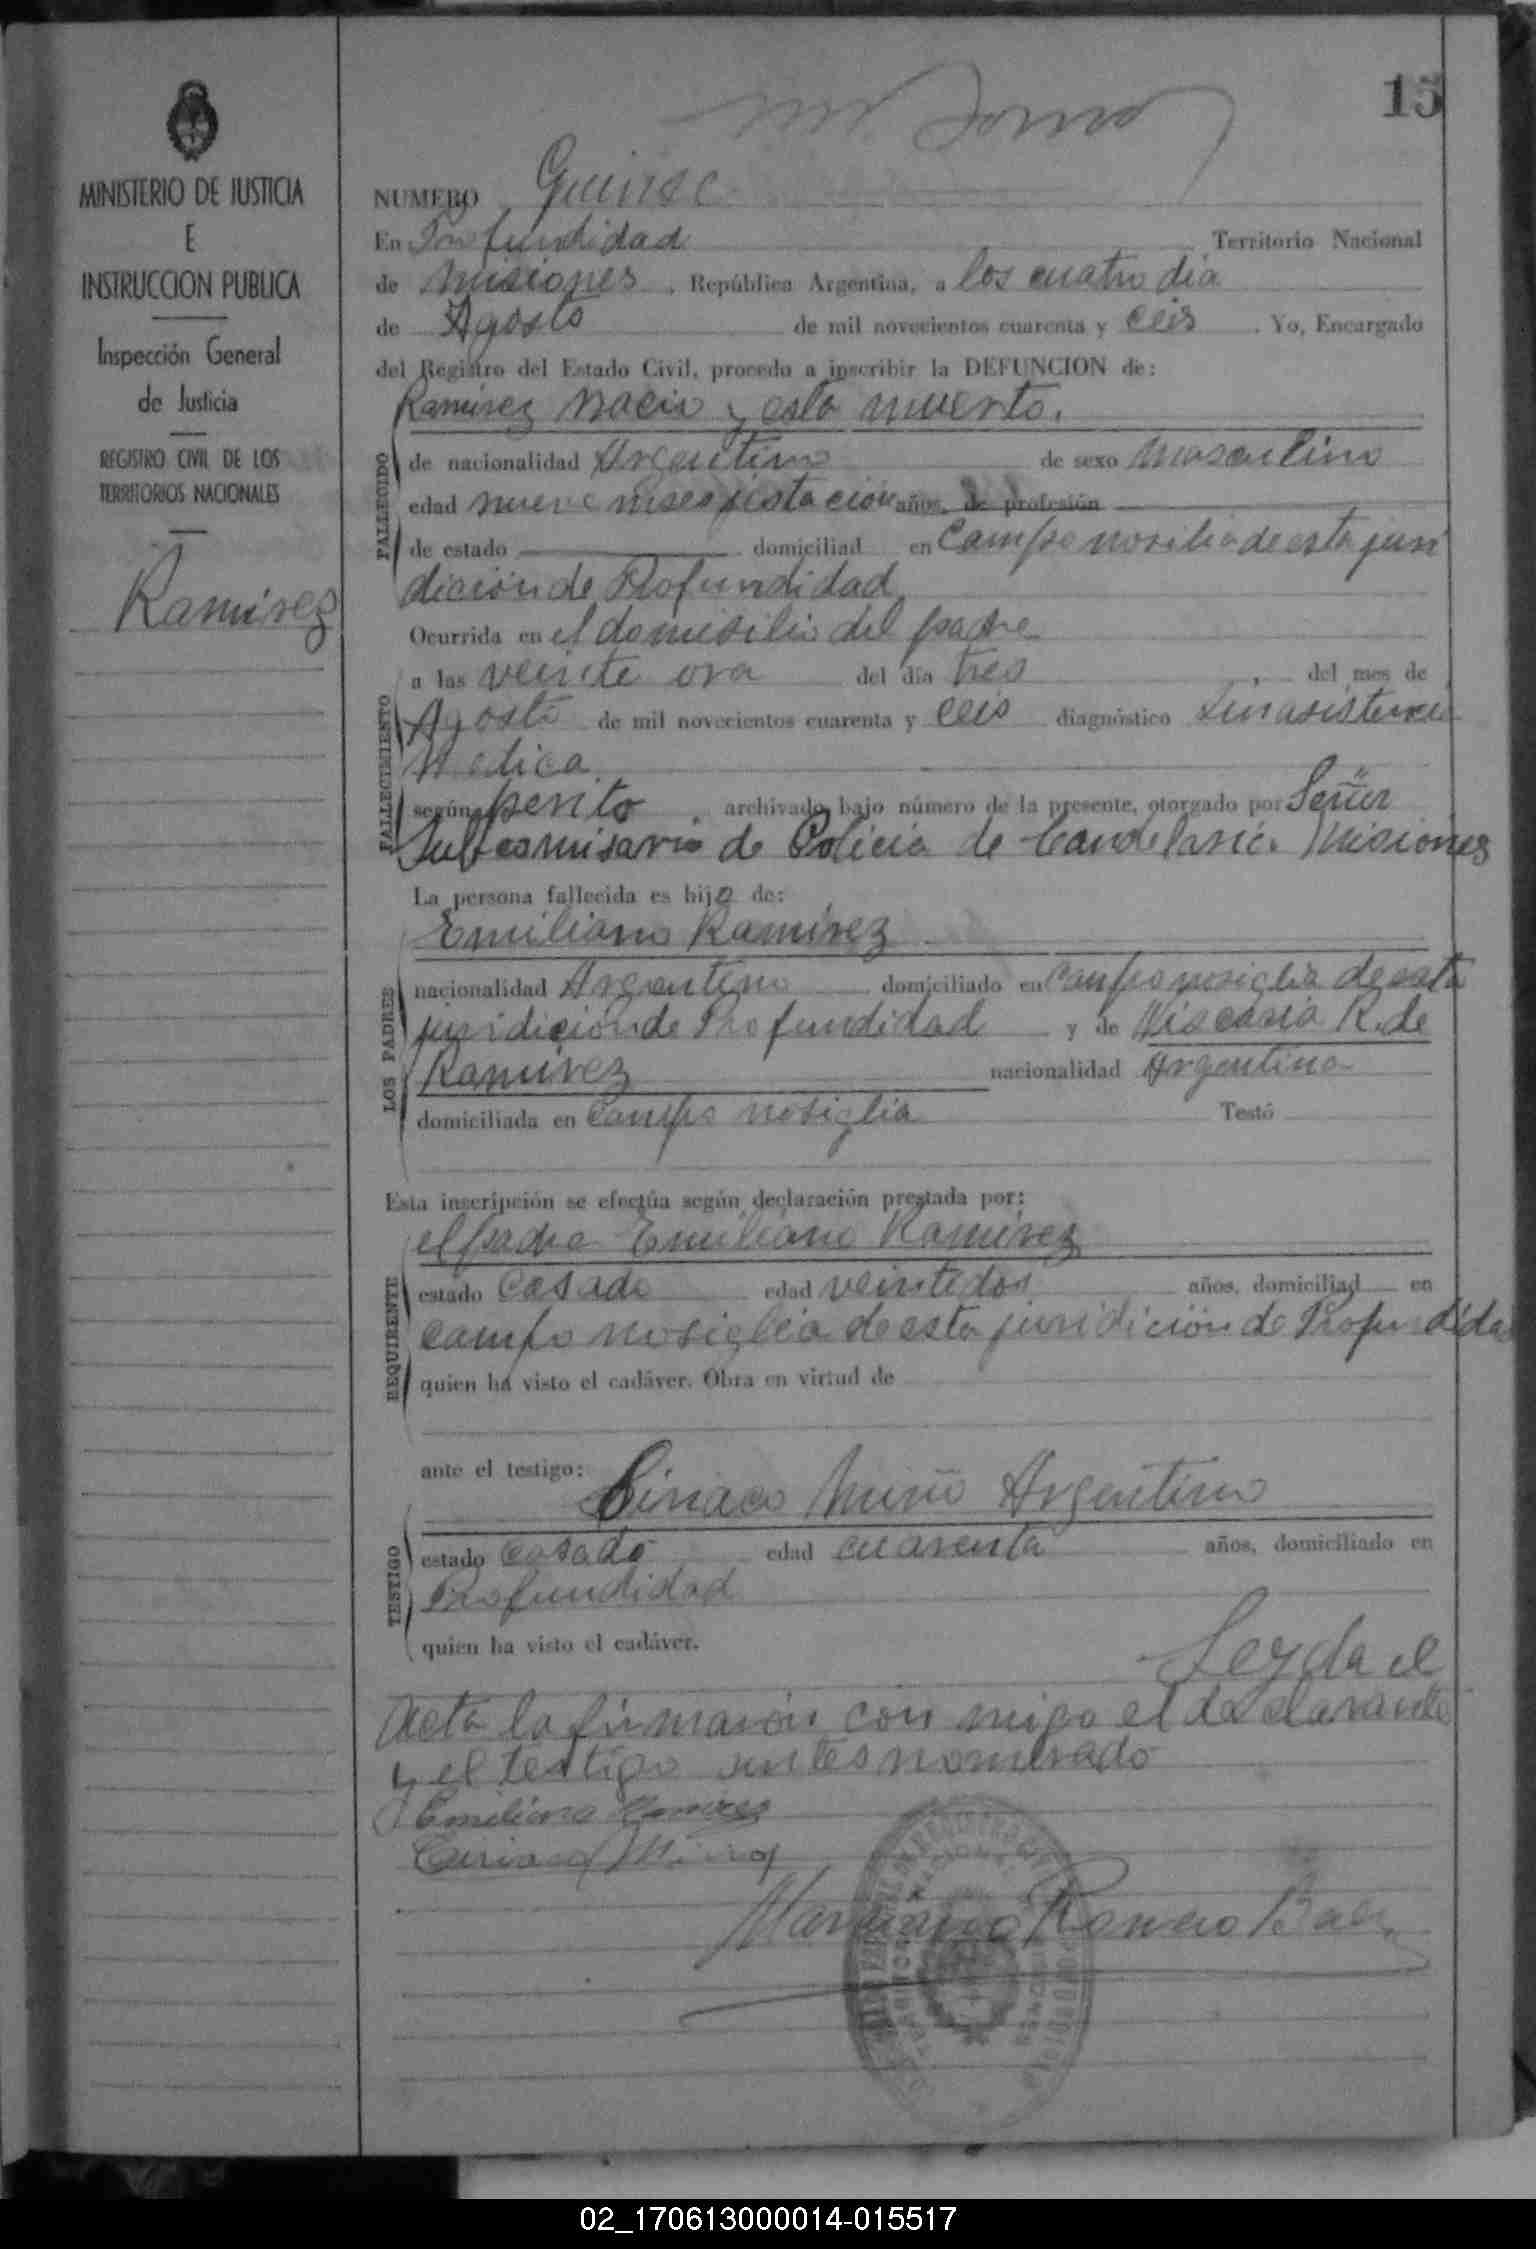 15
MINISTERIO DE JUSTICIA
E
INSTRUCCION PUBLICA
Inspección General
de Justicia
REGISTRO CIVIL DE LOS
TERRITORIOS NACIONALES
Ramirez
NUMERO Quinse
En Profundidad Territorio Nacional
de Misiones, República Argentina, a los cuatro dia
de Agosto de mil novecientos cuarenta y ceis. Yo, Encargado
del Registro del Estado Civil, procedo a inscribir la DEFUNCION de:
Ramirez nacio y esta muerto.
FALLECIDO
de nacionalidad Argentino de sexo masculino
edad nueve meses jestacion años, de profesión
de estado domiciliad en Campo nosilia de esta juri
dicion de Profundidad
Ocurrida en el domisilio del padre
FALLECIMIENTO
a las veinte ora del día tres del mes de
Agosto de mil novecientos cuarenta y ceis diagnóstico Sinasistencia
Medica
según perito, archivado bajo número de la presente, otorgado por Señor
Subcomisario de Policia de Candelaria. Misiones
La persona fallecida es hijo de:
LOS PADRES
Emiliano Ramirez
nacionalidad Argentino domiciliado en Campo nosiglia de esta
juridicion de Profundidad y de R. de
Ramirez nacionalidad Argentina
domiciliada en Campo nosiglia Testó
Esta inscripción se efectúa según declaración prestada por:
REQUIRENTE
el padre Emiliano Ramirez
estado Casado edad veintedos años, domiciliad en
campo nosiglia de esta juridicion de Profundidad
quien ha visto el cadáver. Obra en virtud de
ante el testigo:
TESTIGO
Ciriaco Miño Argentino
estado Casado edad cuarenta años, domiciliado en
Profundidad
quien ha visto el cadáver.
Leyda el
Acta la firmaron con migo el declarante
y el testigo antes nombrado
Emiliano Ramires
Ciriaco Miño
Mariano Romero Baez
02_170613000014-015517